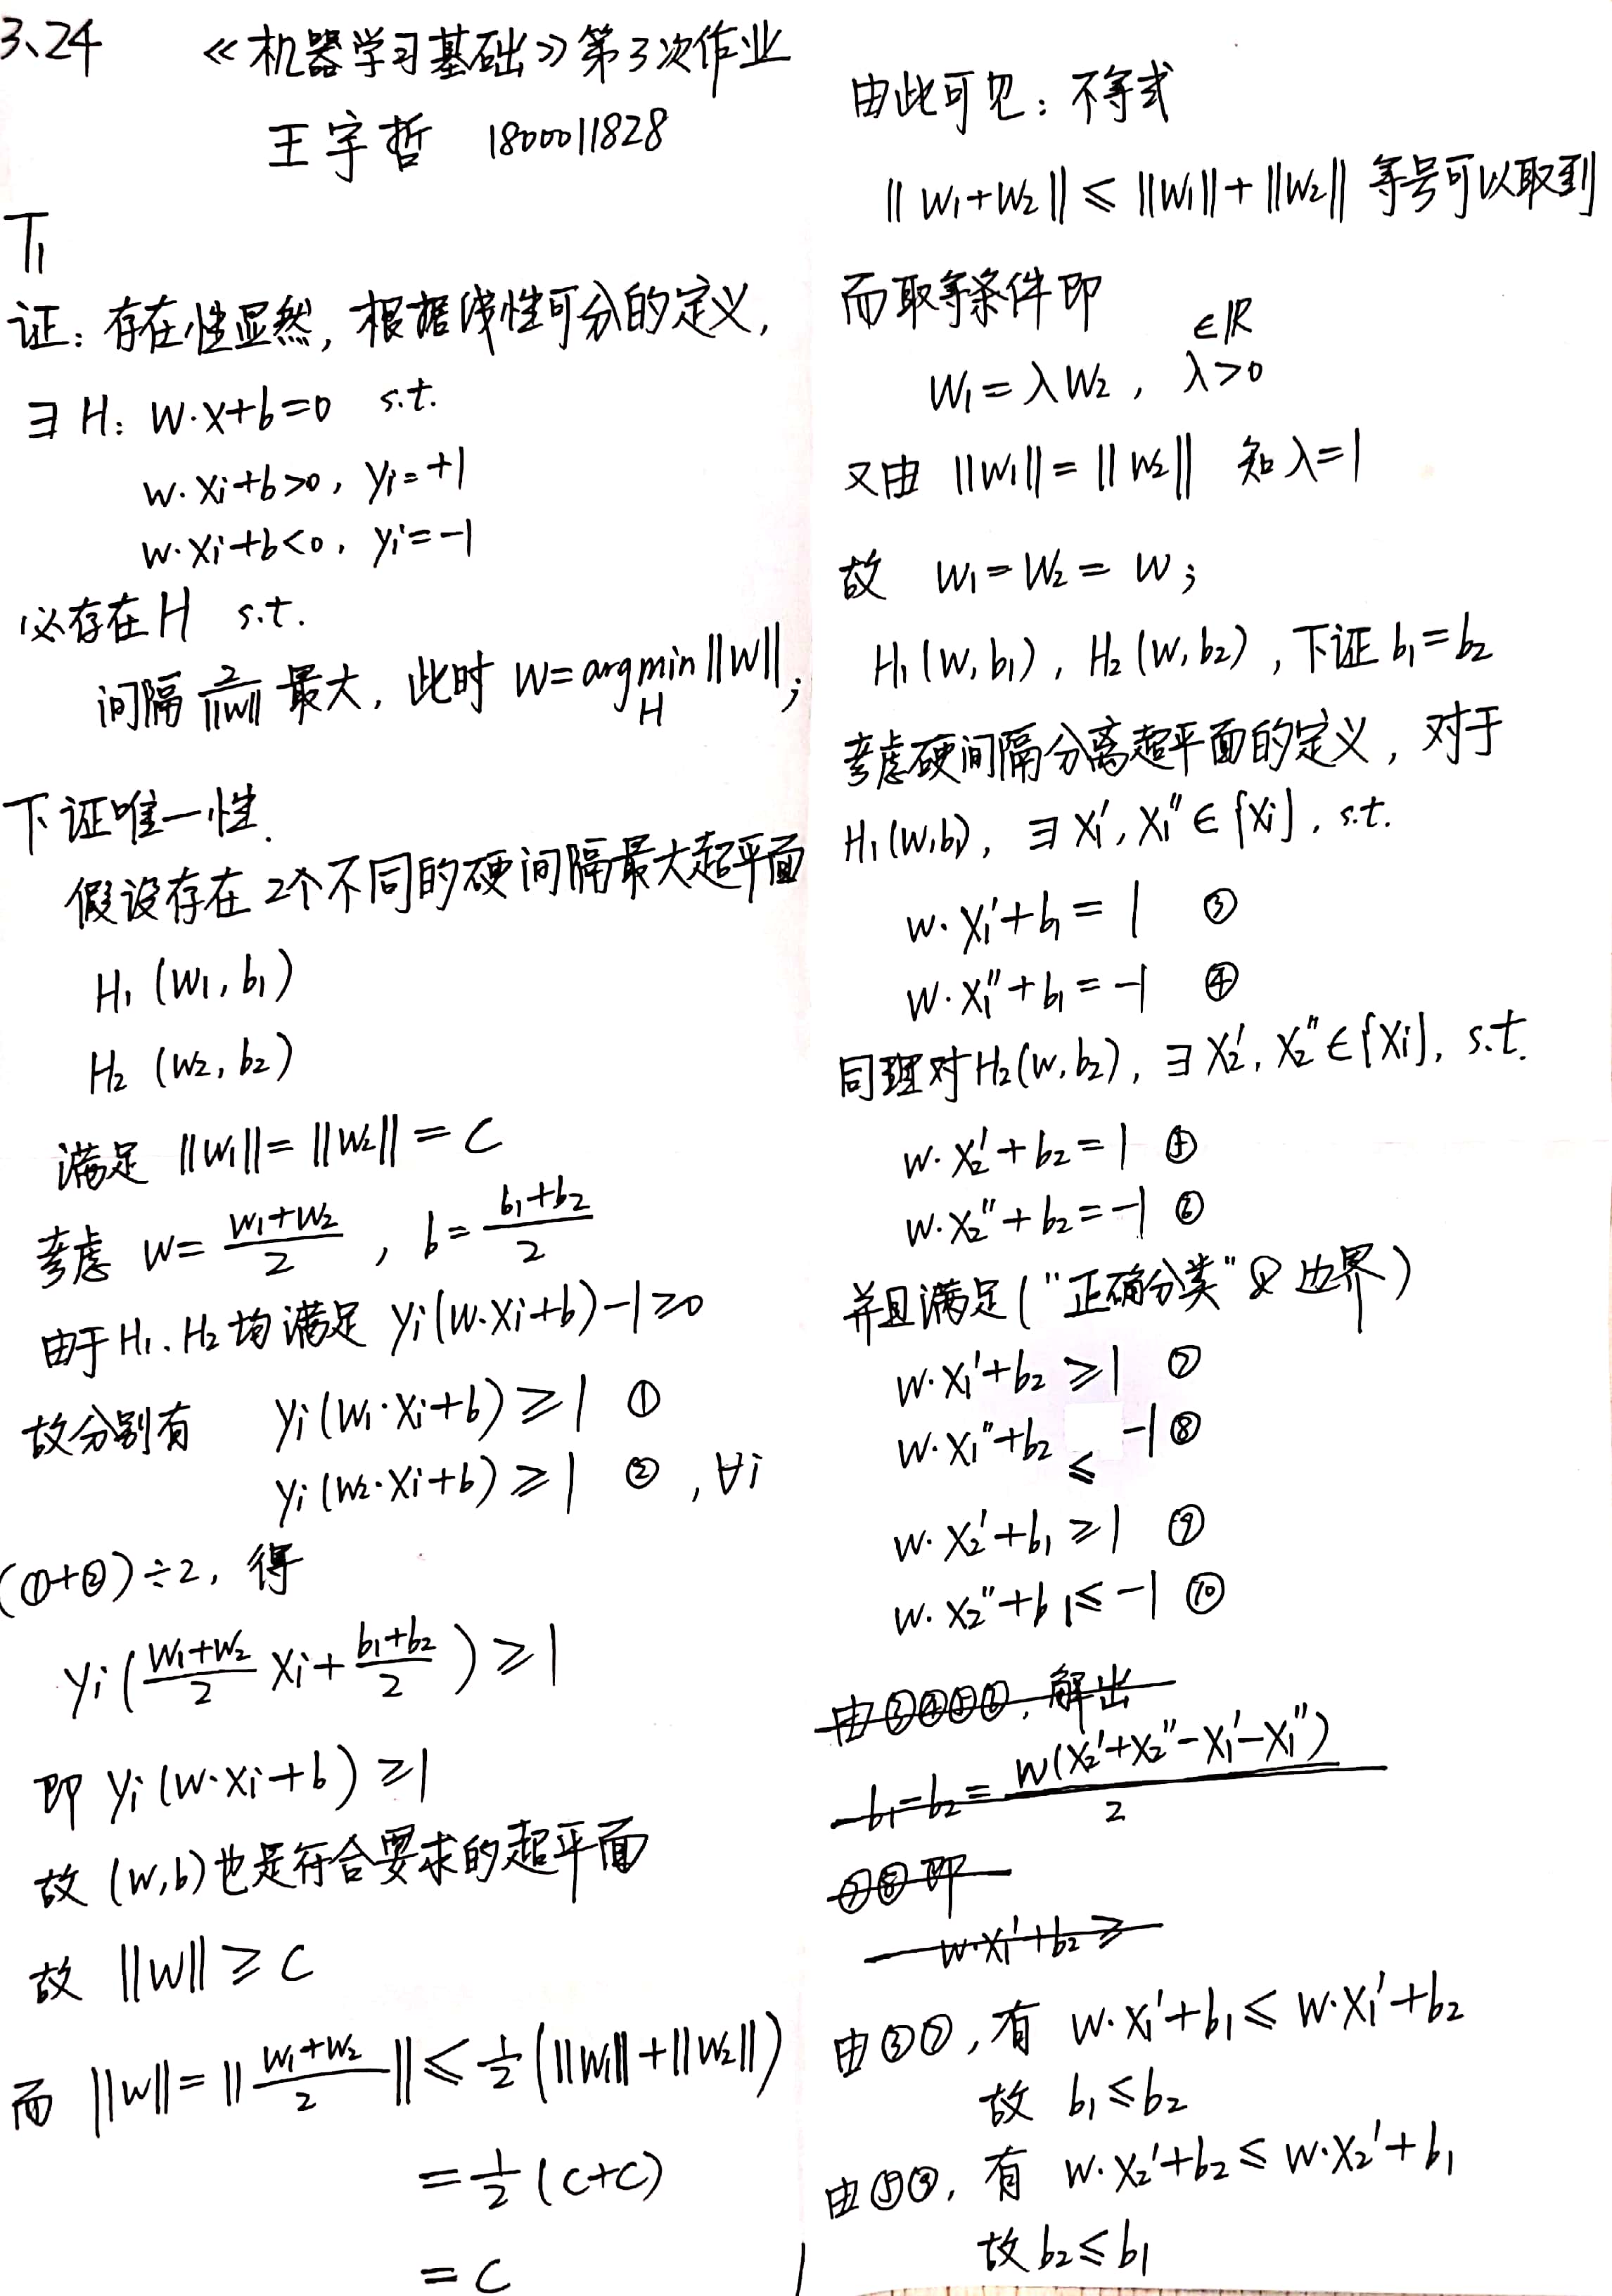 3、24 《机器学习基础》第3次作业
王宇哲 1800011828
T1
证：存在性显然，根据线性可分的定义，
∃ H: w·x+b=0 s.t.
w·xi+b>0, yi=+1
w·xi+b<0, yi=-1
必存在H s.t.
间隔 2/||w|| 最大，此时 w=argmin_H ||w||；
下证唯一性.
假设存在2个不同的硬间隔最大超平面
H1 (w1, b1)
H2 (w2, b2)
满足 ||w1||=||w2||=C
考虑 w=(w1+w2)/2 , b=(b1+b2)/2
由于H1、H2均满足 yi(w·xi+b)-1≥0
故分别有 yi(w1·xi+b)≥1 ①
yi(w2·xi+b)≥1 ② , ∀i
(①+②)÷2, 得
yi((w1+w2)/2 xi+(b1+b2)/2)≥1
即 yi(w·xi+b)≥1
故 (w,b)也是符合要求的超平面
故 ||w||≥C
而 ||w||=||(w1+w2)/2||≤1/2(||w1||+||w2||)
=1/2(C+C)
=C
由此可见：不等式
||w1+w2||≤||w1||+||w2|| 等号可以取到
而取等条件即
w1=λw2, λ>0 ∈ℝ
又由 ||w1||=||w2|| 知 λ=1
故 w1=w2=w；
H1(w,b1), H2(w,b2), 下证 b1=b2
考虑硬间隔分离超平面的定义，对于
H1(w,b1), ∃ x1', x1''∈{xi}, s.t.
w·x1'+b1=1 ③
w·x1''+b1=-1 ④
同理对H2(w,b2), ∃ x2', x2''∈{xi}, s.t.
w·x2'+b2=1 ⑤
w·x2''+b2=-1 ⑥
并且满足("正确分类"及边界)
w·x1'+b2≥1 ⑦
w·x1''+b2≤-1 ⑧
w·x2'+b1≥1 ⑨
w·x2''+b1≤-1 ⑩
由③④⑤⑥, 解出
b1-b2=w(x2'+x2''-x1'-x1'')/2
⑦⑧即
w·x1'+b2≥
由③⑦, 有 w·x1'+b1≤w·x1'+b2
故 b1≤b2
由⑤⑨, 有 w·x2'+b2≤w·x2'+b1
故 b2≤b1